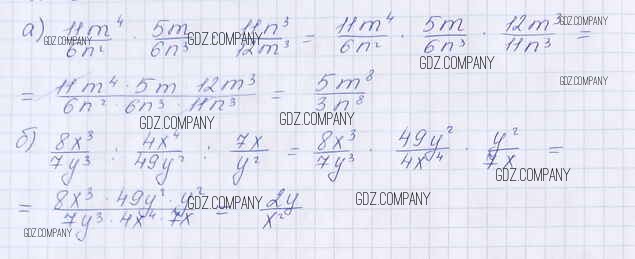 а) 11m⁴/6n² · 5m/6n³ : 11n³/12m³ = 11m⁴/6n² · 5m/6n³ · 12m³/11n³ =
= 11m⁴ · 5m · 12m³/6n² · 6n³ · 11n³ = 5m⁸/3n⁸
б) 8x³/7y³ : 4x⁴/49y² : 7x/y² = 8x³/7y³ · 49y²/4x⁴ · y²/7x =
= 8x³ · 49y² · y²/7y³ · 4x⁴ · 7x = 2y/x²
GDZ.COMPANY
GDZ.COMPANY
GDZ.COMPANY
GDZ.COMPANY
GDZ.COMPANY
GDZ.COMPANY
GDZ.COMPANY
GDZ.COMPANY
GDZ.COMPANY
GDZ.COMPANY
GDZ.COMPANY